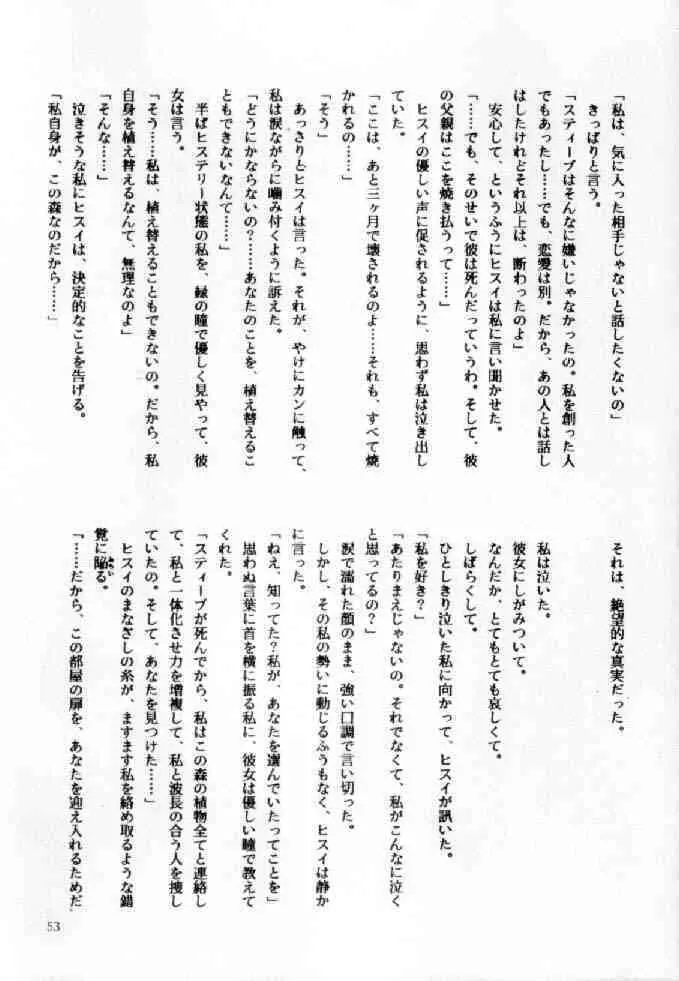 「私は、気に入った相手じゃないと話したくないの」
きっぱりと言う。
「スティーブはそんなに嫌いじゃなかったの。私を創った人
でもあったし……でも、恋愛は別。だから、あの人とは話し
はしたけれどそれ以上は、断わったのよ」
安心して、というふうにヒスイは私に言い聞かせた。
「……でも、そのせいで彼は死んだっていうわ。そして、彼
の父親はここを焼き払うって……」
ヒスイの優しい声に促されるように、思わず私は泣き出し
ていた。
「ここは、あと三ヶ月で壊されるのよ……それも、すべて焼
かれるの……」
「そう」
あっさりとヒスイは言った。それが、やけにカンに触って、
私は涙ながらに噛み付くように訴えた。
「どうにかならないの？……あなたのことを、植え替えるこ
ともできないなんて……」
半ばヒステリー状態の私を、緑の瞳で優しく見やって、彼
女は言う。
「そう……私は、植え替えることもできないの。だから、私
自身を植え替えるなんて、無理なのよ」
「そんな……」
泣きそうな私にヒスイは、決定的なことを告げる。
「私自身が、この森なのだから……」
それは、絶望的な真実だった。
私は泣いた。
彼女にしがみついて。
なんだか、とてもとても哀しくて。
しばらくして。
ひとしきり泣いた私に向かって、ヒスイが訊いた。
「私を好き？」
「あたりまえじゃないの。それでなくて、私がこんなに泣く
と思ってるの？」
涙で濡れた顔のまま、強い口調で言い切った。
しかし、その私の勢いに動じるふうもなく、ヒスイは静か
に言った。
「ねえ、知ってた？私が、あなたを選んでいたってことを」
思わぬ言葉に首を横に振る私に、彼女は優しい瞳で教えて
くれた。
「スティーブが死んでから、私はこの森の植物全てと連絡し
て、私と一体化させ力を増複して、私と波長の合う人を捜し
ていたの。そして、あなたを見つけた……」
ヒスイのまなざしの糸が、ますます私を絡め取るような錯
覚に陥る。
「……だから、この部屋の扉を、あなたを迎え入れるためだ
53